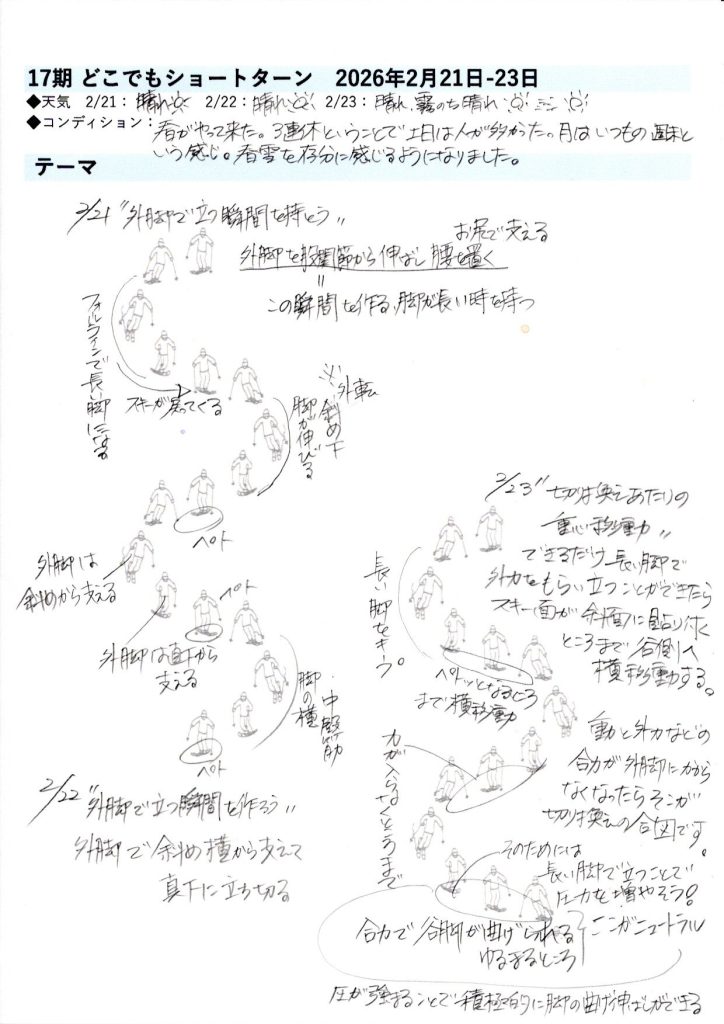 17期 どこでもショートターン 2026年2月21日-23日
◆天気 2/21：晴れ 2/22：晴れ 2/23：晴れ、霧のち晴れ
◆コンディション：春がやって来た。3連休ということで土日は人が多かった。月はいつもの週末と
いう感じ。春雪を存分に感じるようになりました。
テーマ
2/21 "外脚で立つ瞬間を持とう"
お尻で支える
外脚を股関節から伸ばし腰を置く
=
この瞬間を作る、脚が長い時を持つ
フォルラインで長い脚になる
スキーが戻ってくる
※外転
斜め下
脚が伸びる
ペト
外脚は
斜めから支える
ペト
外脚は真下から
支える
脚の横
・中殿筋
ペト
2/22 "外脚で立つ瞬間を作ろう"
外脚で斜め横から支えて
真下に立ち切る
2/23 "切り換えあたりの
重心移動"
できるだけ長い脚で
外力をもらい立つことができたら
スキー面が斜面に貼り付く
ところまで谷側へ
横移動する。
長い脚をキープ。
ペトッとなるところ
まで横移動
重力と外力などの
合力が外脚にかから
なくなったらそこが
切り換えの合図です。
力が入らなくなるまで
そのためには
長い脚で立つことで
圧力を増やそう!
合力で谷脚が曲げられる
ゆるまるところ
ここがニュートラル
圧が強まることで積極的に脚の曲げ伸ばしができる